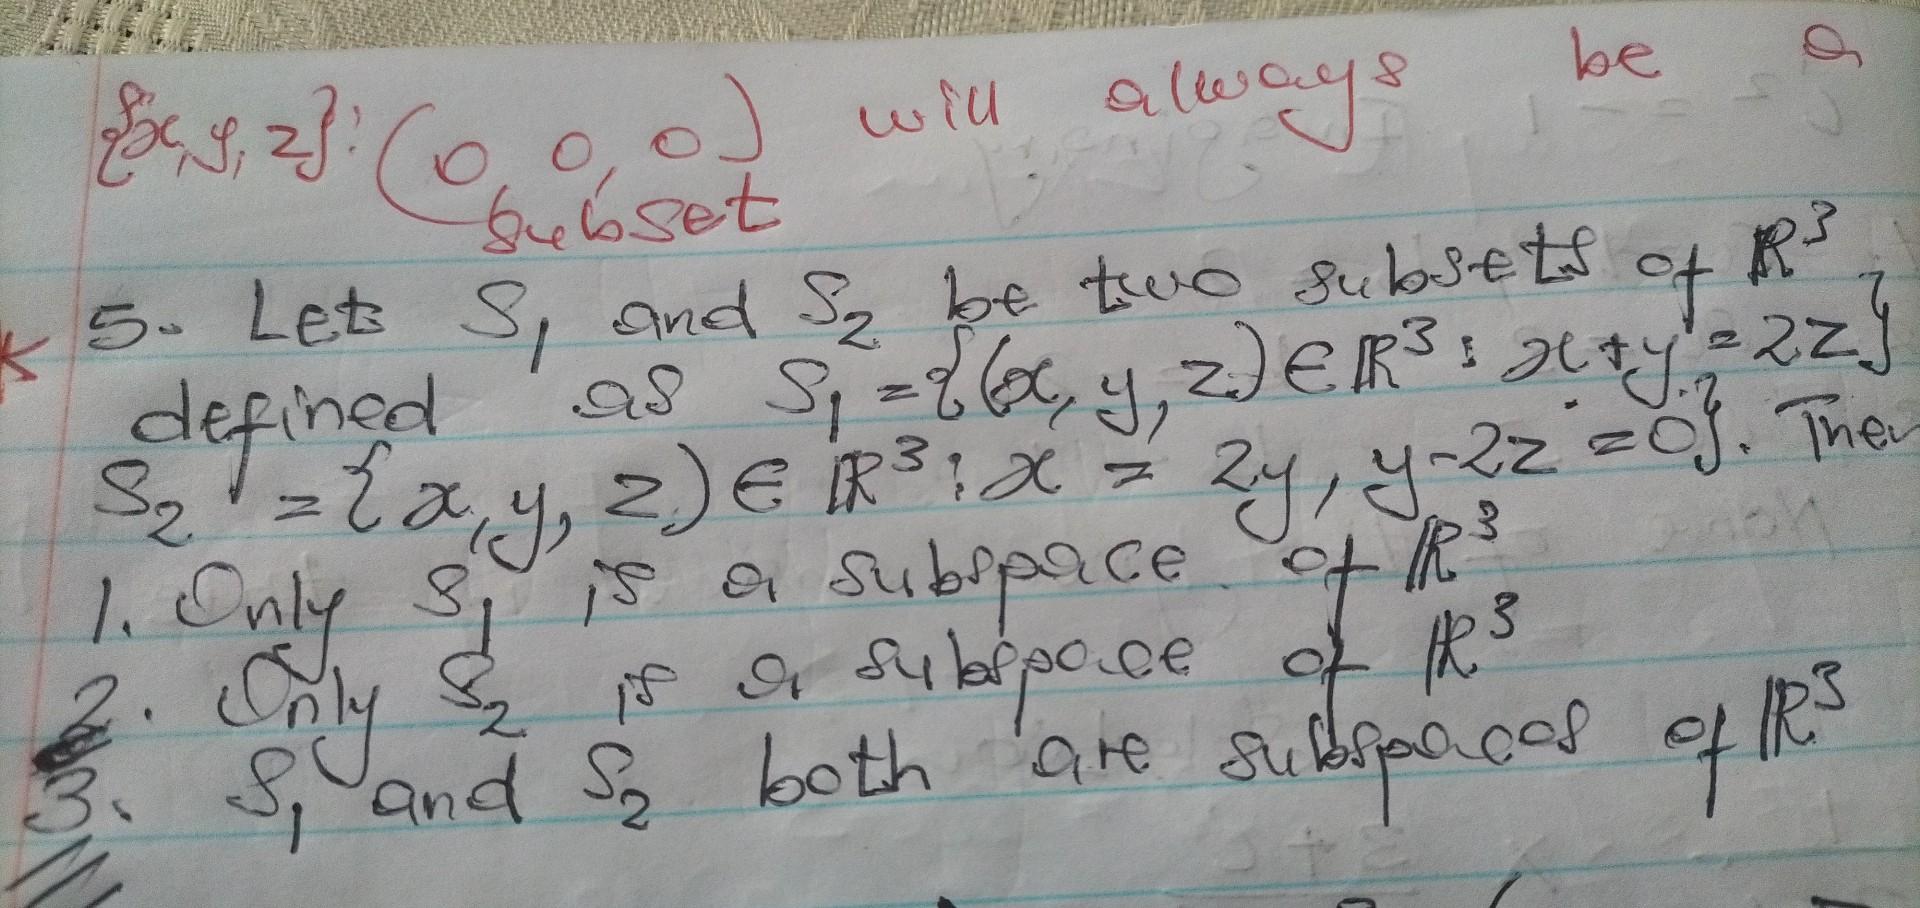 {x, y, z}: (0, 0, 0) will always be a
subset
5. Let S₁ and S₂ be two subsets of ℝ³
defined as S₁ = {(x, y, z) ∈ ℝ³ : x + y = 2z}
S₂ = {x, y, z) ∈ ℝ³ : x = 2y, y - 2z = 0}. Then
1. Only S₁ is a subspace of ℝ³
2. Only S₂ is a subspace of ℝ³
3. S₁ and S₂ both are subspaces of ℝ³